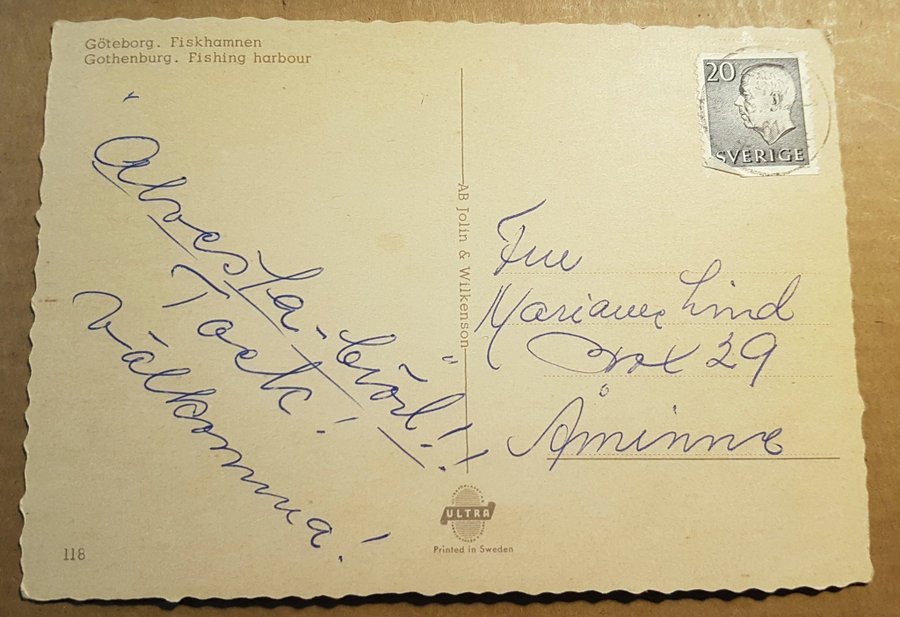 Göteborg. Fiskhamnen
Gothenburg. Fishing harbour
20
SVERIGE
61
Tack!
Välkomna!
AB Jolin & Wilkenson
Fru
Marianne Lind
Box 29
Åminne
ULTRA
Printed in Sweden
118